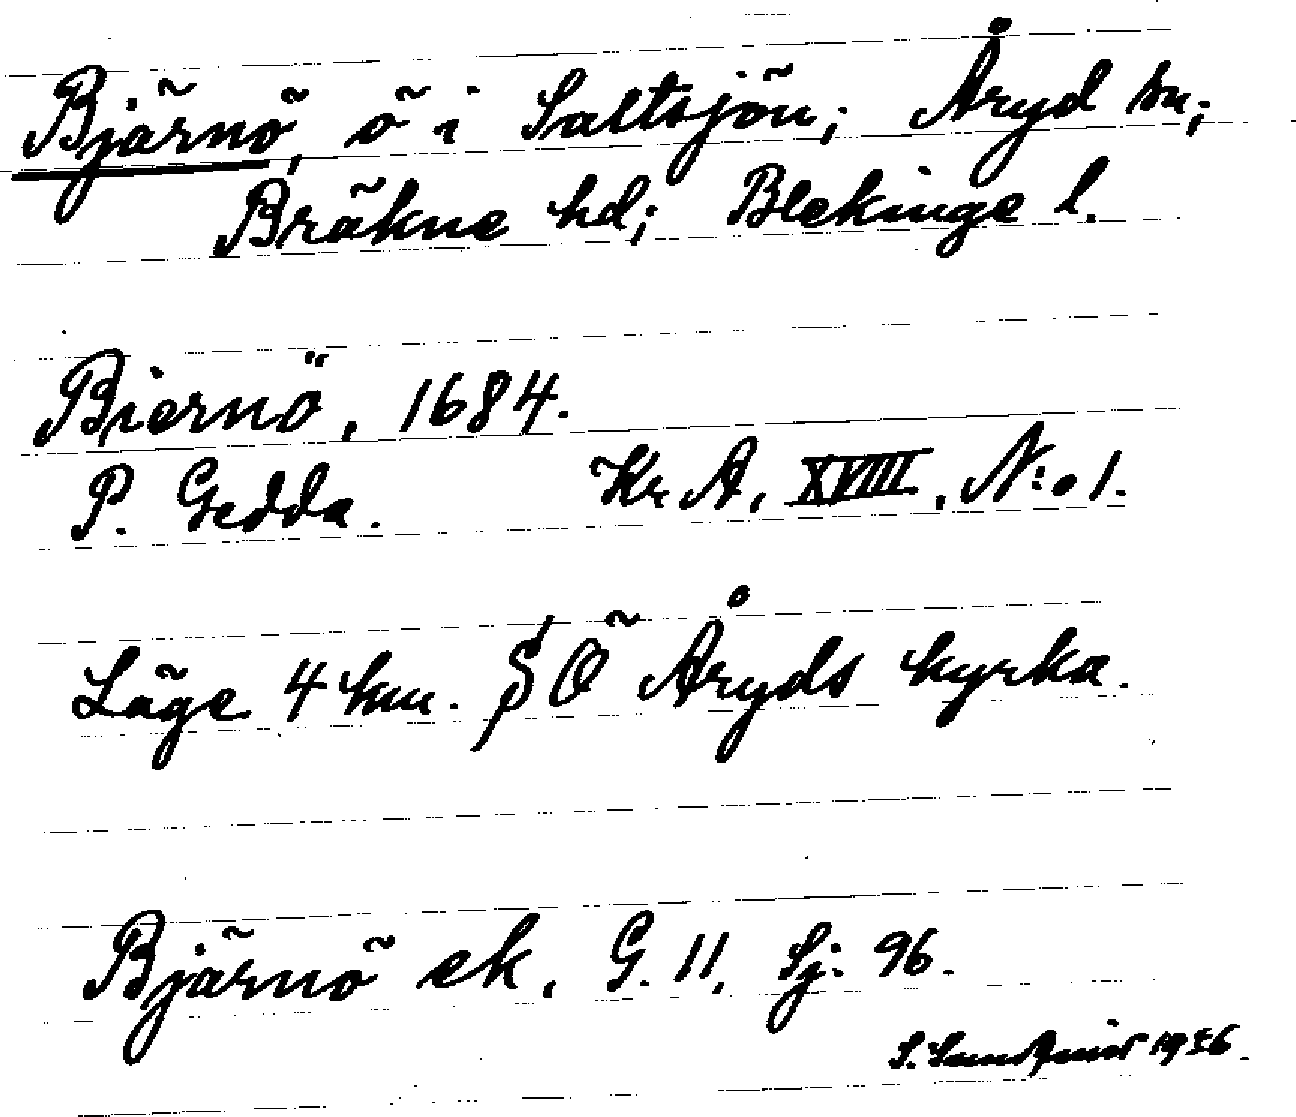 Bjärnö, ö i Saltsjön; Åryd sn;
Bräkne hd; Blekinge l.
Biernö, 1684.
P. Gedda. Kr. A, XVIII, N:o 1.
Läge 4 km. SÖ Åryds kyrka.
Bjärnö ek. G. 11, Sj. 96.
S. 1926.